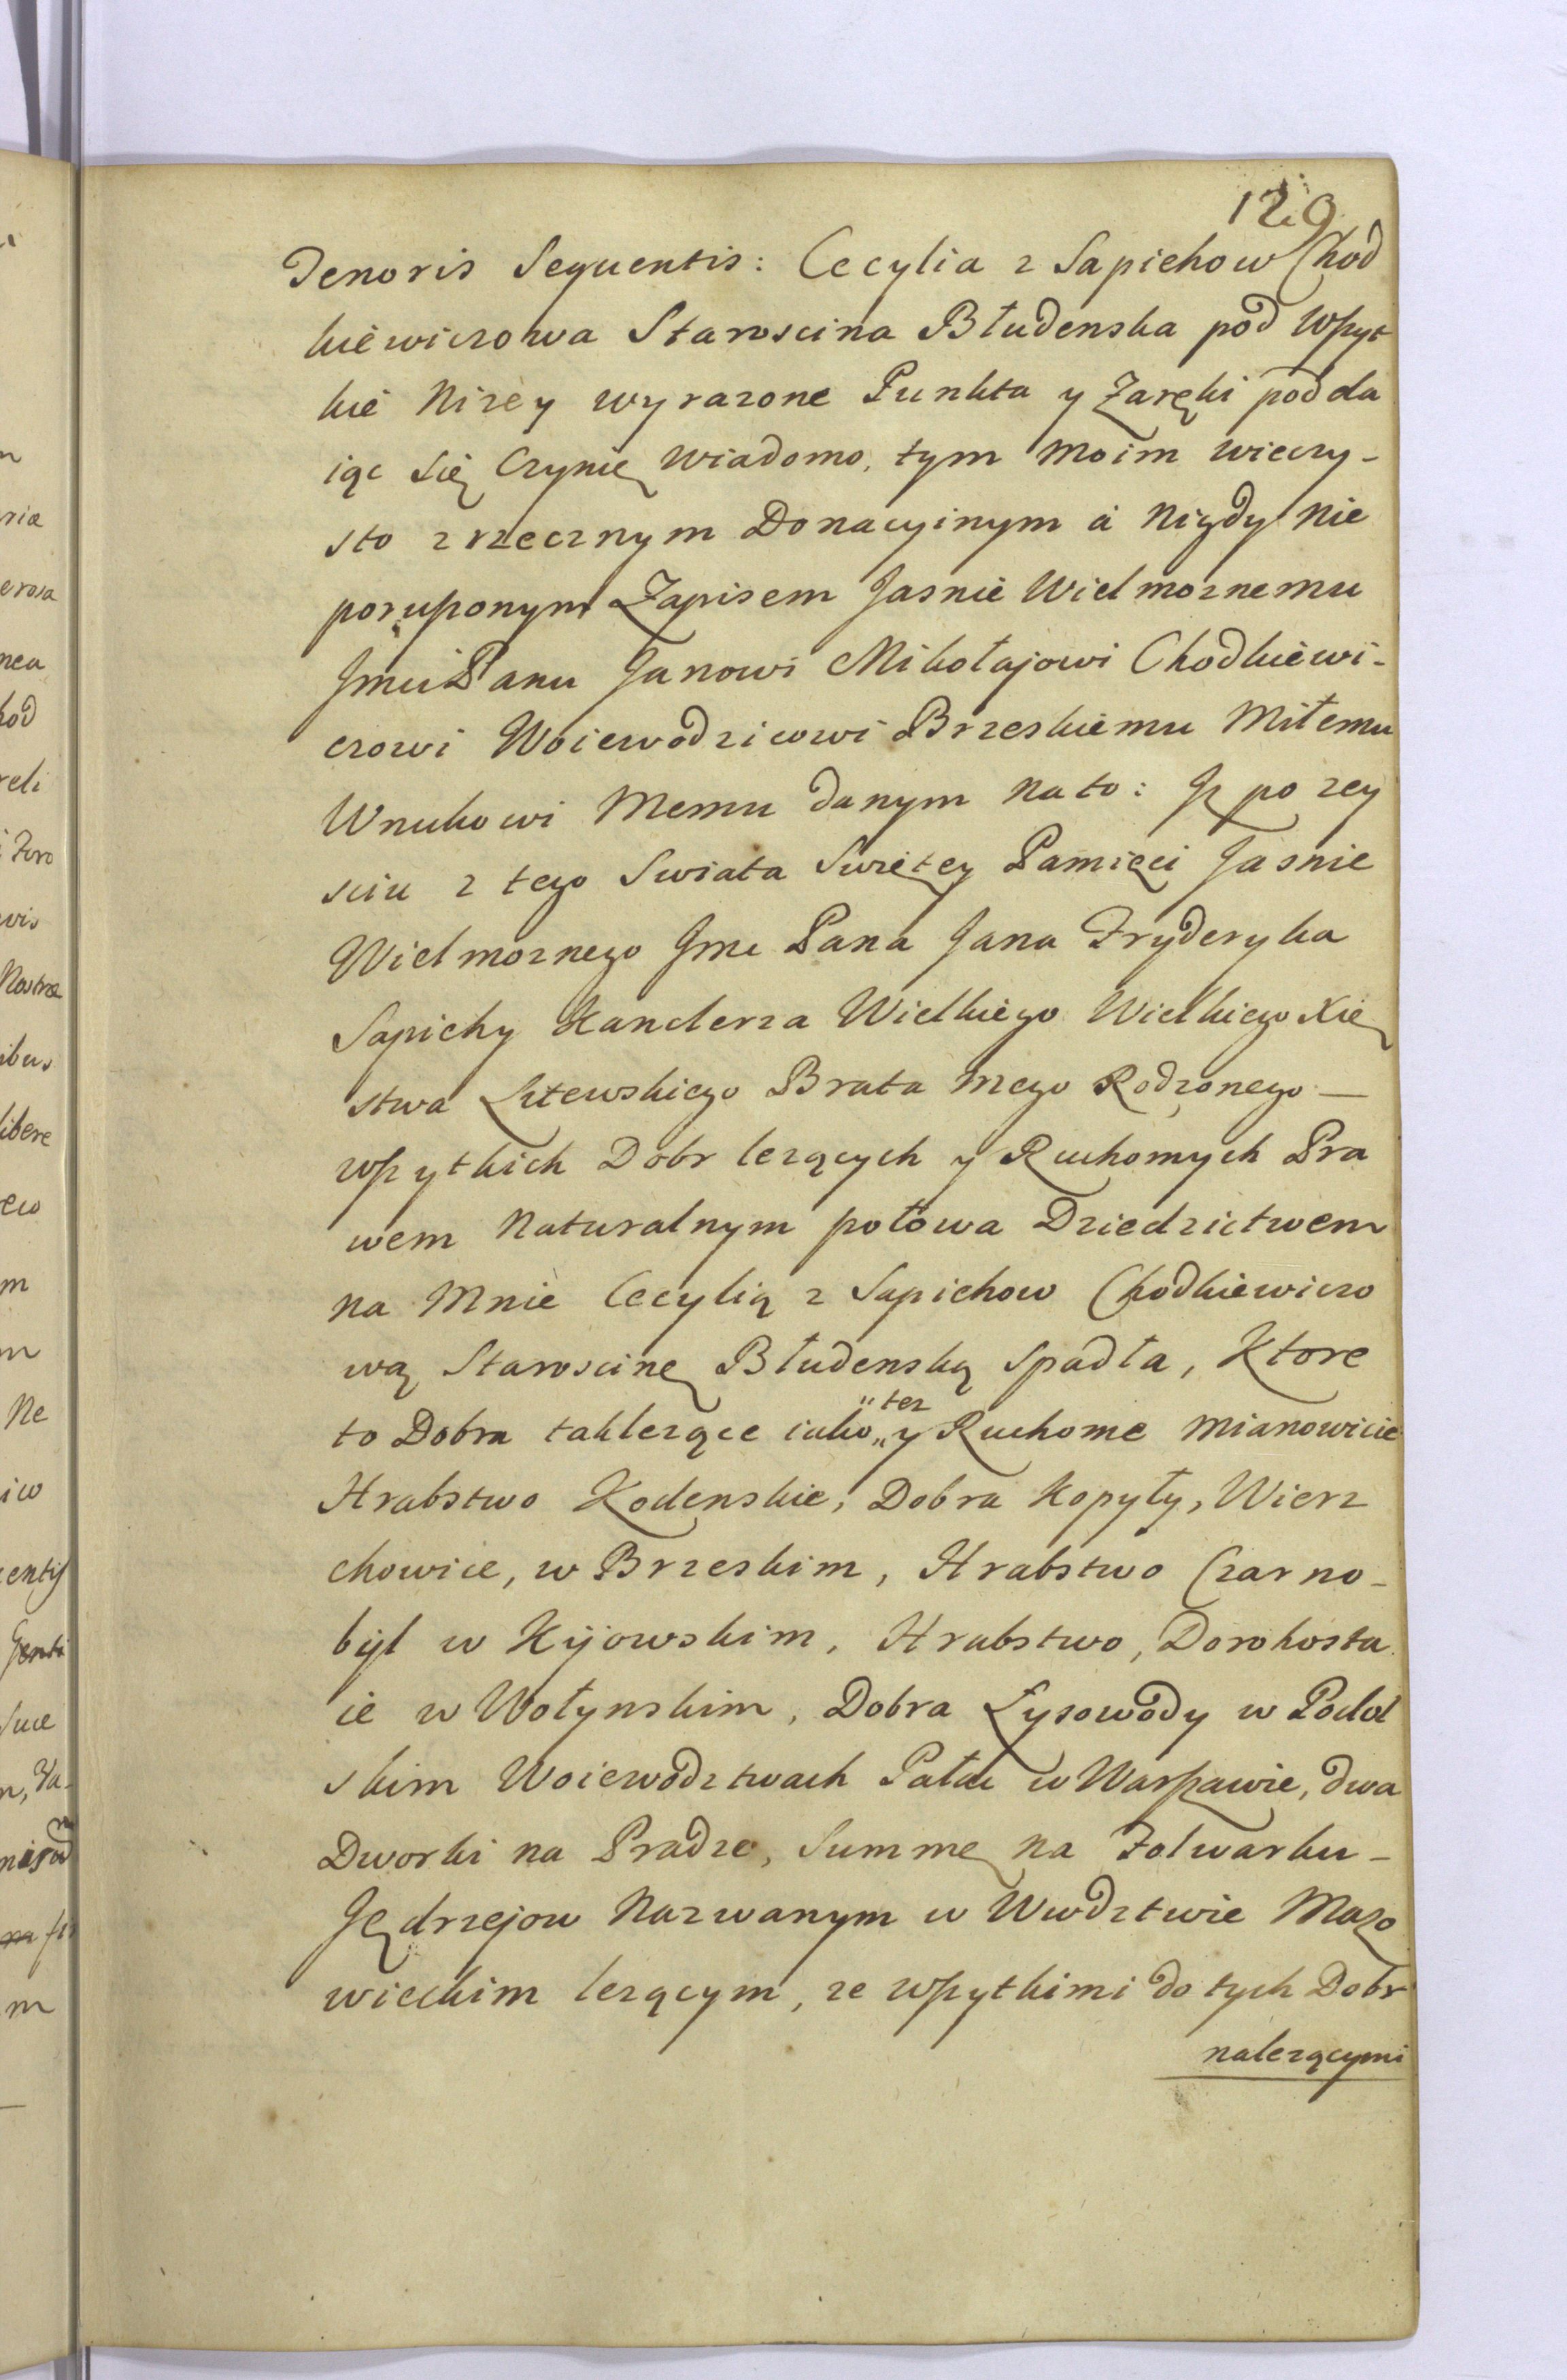 129
Tenoris Sequentis: Cecylia z Sapiehow Chod
kiewiczowa Staroscina Błudenska pod wszyt
kie Nizey wyrazone Punkta y Zaręki podda
iąc się Czynię Wiadomo, tym moim wieczy-
sto zrzecznym Donacyinym á Nigdy Nie
poruszonym Zapisem Jasnie Wielmoznemu
Jmci Panu Janowi Mikołajowi Chodkiewi-
czowi Woiewodzicowi Brzeskiemu Miłemu
Wnukowi Memu danym na to: Jz po zey
sciu z tego Swiata Swiętey Pamięci Jasnie
Wielmoznego Jmc Pana Jana Fryderyka
Sapiehy Kanclerza Wielkiego Wielkiego Xię
stwa Litewskiego Brata mego Rodzonego —
wszytkich Dobr lezących y Ruchomych Pra
wem Naturalnym połowa Dziedzictwem
na Mnie Cecylią z Sapiehow Chodkiewiczo
wą Staroscinę Błudenską Spadła, Ktore
to Dobra tak lezące iako „tez„ y Ruchome mianowicie
Hrabstwo Kodenskie, Dobra Kopyły, Wierz
chowice, w Brzeskim, Hrabstwo Czarno-
byl w Kijowskim, Hrabstwo, Dorohosta
ie w Wołynskim, Dobra Łysowody w Podol
skim Woiewodztwach Pałac w Warszawie, dwa
Dworki na Pradze, Summę na Folwarku -
Jędrzejow Nazwanym w Wwdztwie Mazo
wieckim lezącym, ze wszytkimi do tych Dobr
nalezącymi